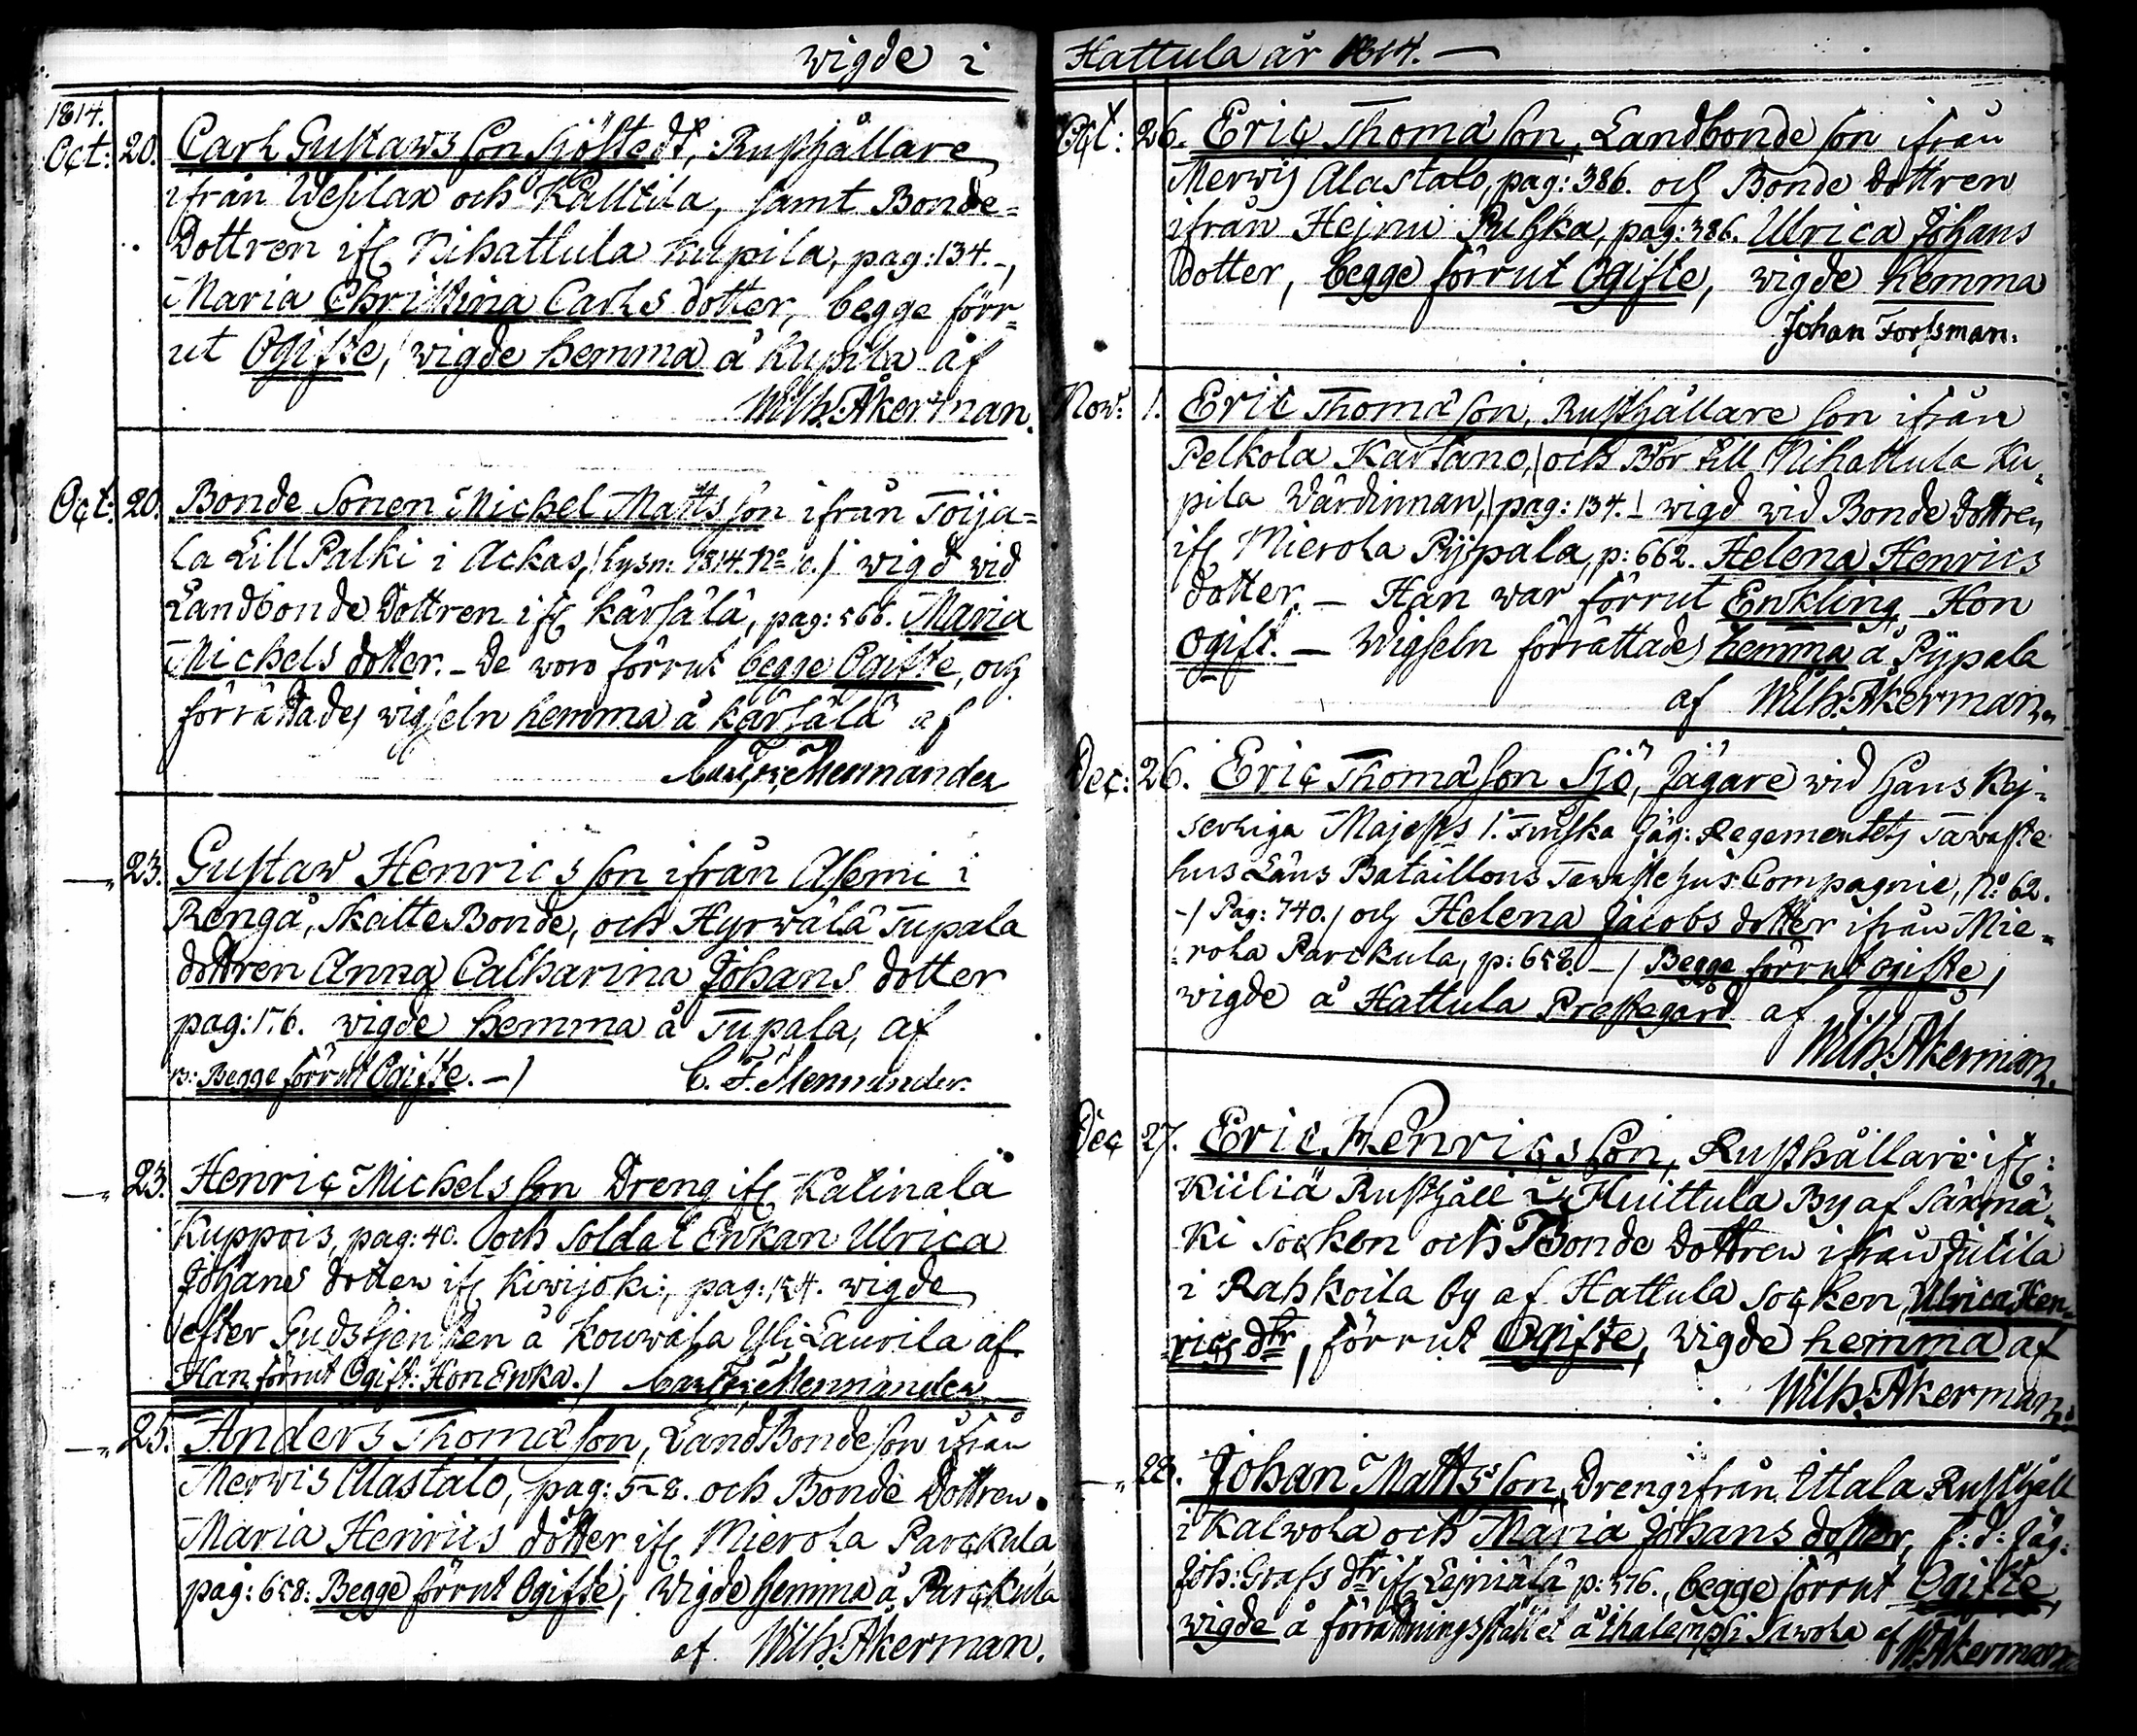 wigde i
1814.
Oct: 20. Carl Gustaws Son Sjöstedt, Rusthållare
ifrån Wesilax och Kalltila, samt Bonde-
Dottren ifr Nihattula Kupila, pag: 134.-,
Maria Christina Carls dotter, begge förr-
ut Ogifte, wigde hemma å Kupila af
Wilh: Åkerman.
Oct: 20. Bonde Sonen Michel Matts son ifrån Toija-
la Lill Palki i Ackas, / Lysn: 1814. No / wigd wid
Landbonde Dottren ifr Kärsälä, pag: 566. Maria
Michels dotter. - De woro förrut begge Ogifte, och
förrättades wigseln hemma å Kärsälä af
Mennander
—„ 23. Gustaw Henrics son ifrån Asemi i
Rengå, Skatte Bonde, och Hyrwälä Tupala
dottren Anna Catharina Johans dotter
pag: 176. wigde hemma å Tupala, af
Begge förrut Ogifte. -/ C. F. Mennander.
—„ 23. Henric Michels son Dreng ifr Katinala
Kuppois, pag: 40. och Soldat Enkan Ulrica
Johans dotter ifr Kiwijoki, pag: 154. wigde
efter Gudstjensten å Kouwala Yli Laurila af
Han förrut Ogift: Hon Enka./ Mennander
—„ 25. Anders Thomæ son, Land Bonde son ifrån
Merwis Alastalo, pag: 528. och Bonde Dottren
Maria Henrics dotter ifr Mierola Parckula
pag: 658: Begge förrut Ogifte, wigde hemma å Parckula
af Wilh: Åkerman.
Hattula år 1814. —
Oct: 26. Eric Thomæ son, Landbonde son ifrån
Merwis Alastalo, pag: 386. och Bonde dottren
ifrån Hejnu Puhska, pag: 386. Ulrica Johans
dotter, begge förrut Ogifte, wigde hemma
Johan Forssman.
Now: 1. Eric Thomæ son, Rusthållare son ifrån
Pelkola Kartano, / och Bror till Nihattula Ku-
pila Wärdinnan, / pag: 134. / wigd wid Bonde Dottren
ifr Mierola Pÿpala, p: 662. Helena Henrics
dotter. — Han war förrut Enkling, Hon
Ogift. — Wigseln förrättades hemma å Pÿpala
af Wilh: Åkerman.
Dec: 26. Eric Thomæ son Sjö, Jägare wid Hans Kej-
serliga Majests 1. Finska Jäg: Regementets Tawaste
hus Läns Bataillons Tawastehus Compagnie, No: 62.
-/ Pag: 740. / och Helena Jacobs dotter ifrån Mie-
rola Parckula, p: 658. -/ Begge förrut ogifte /
wigde å Hattula Prestegård af
Wilh: Åkerman.
Dec 27. Eric Henrics Son, Rusthållare ifr:
Kiiliä Rusthåll Huittula By af Säxmä-
ki Socken och Bonde Dottren ifrån Jutila
i Rahkoila by af Hattula Socken, Ulrica Hen-
rics dtr, förrut Ogifte, wigde hemma af
Wilh: Åkerman.
—„ 28. Johan Matts son, Dreng ifrån Ittala Rusthåll
i Kalwola och Maria Johans dotter, f: d: Jäg:
Joh: Grafs dtr ifr Lejniälä p: 376., begge förrut Ogifte,
wigde å förrättningsstället å Ihalempi Sawola af W: Åkerman